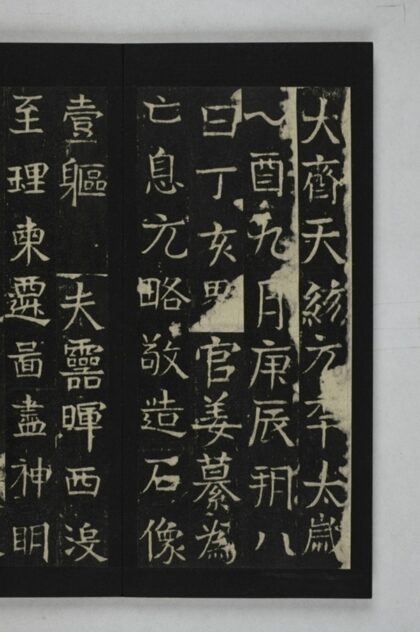 大齊天統元年太歲
乙酉九月庚辰朔八
日丁亥官姜纂為
亡息元略敬造石像
壹軀 夫靈暉西沒
至理東遷啚盡神明